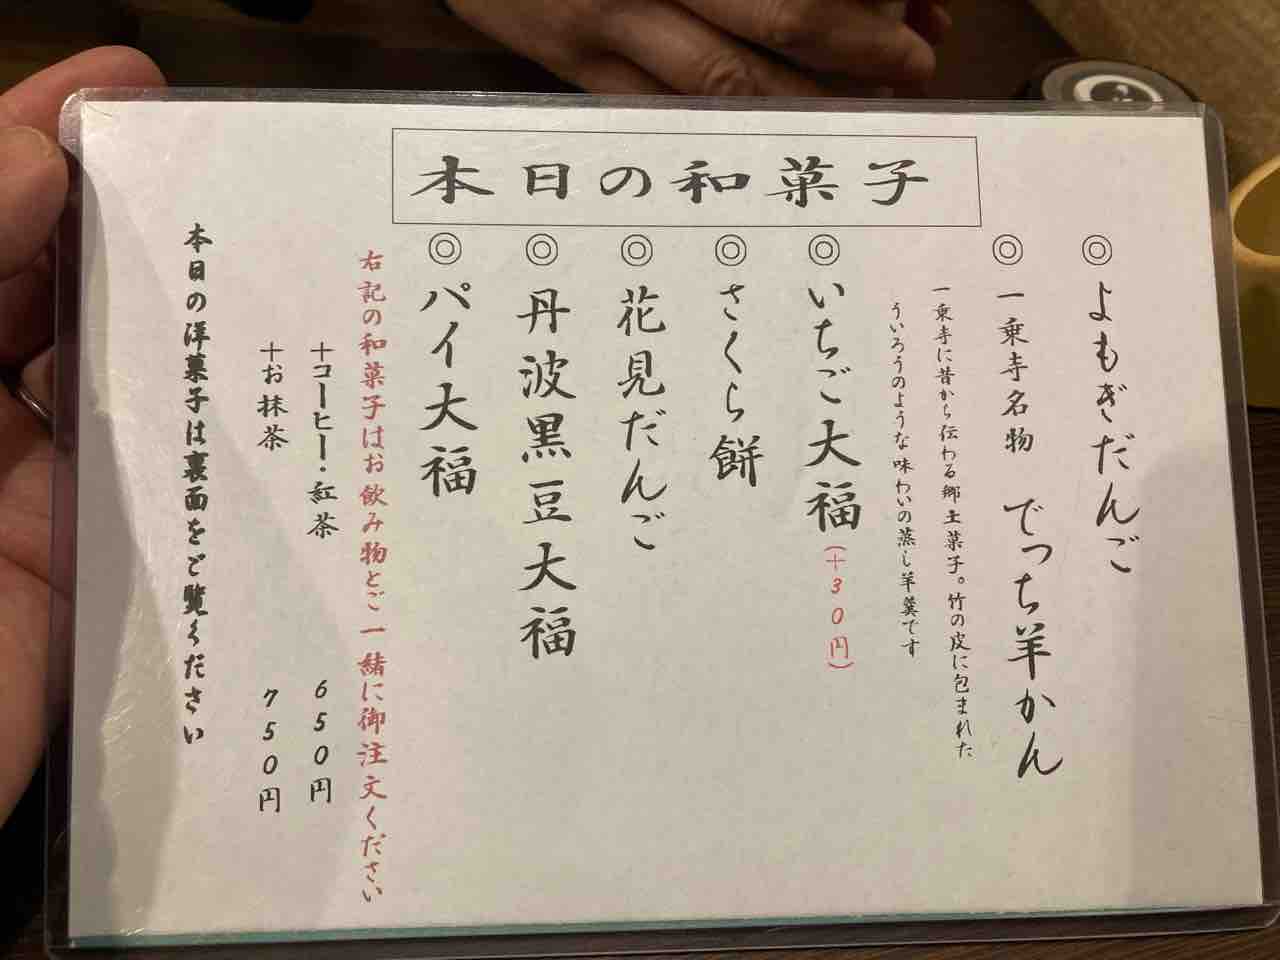 本日の和菓子
◎よもぎだんご
◎一乗寺名物 でっち羊かん
一乗寺に昔から伝わる郷土菓子。竹の皮に包まれた
ういろうのような味わいの蒸し羊羹です
◎いちご大福(+30円)
◎さくら餅
◎花見だんご
◎丹波黒豆大福
◎パイ大福
右記の和菓子はお飲み物とご一緒に御注文ください
+コーヒー・紅茶 650円
+お抹茶 750円
本日の洋菓子は裏面をご覧ください